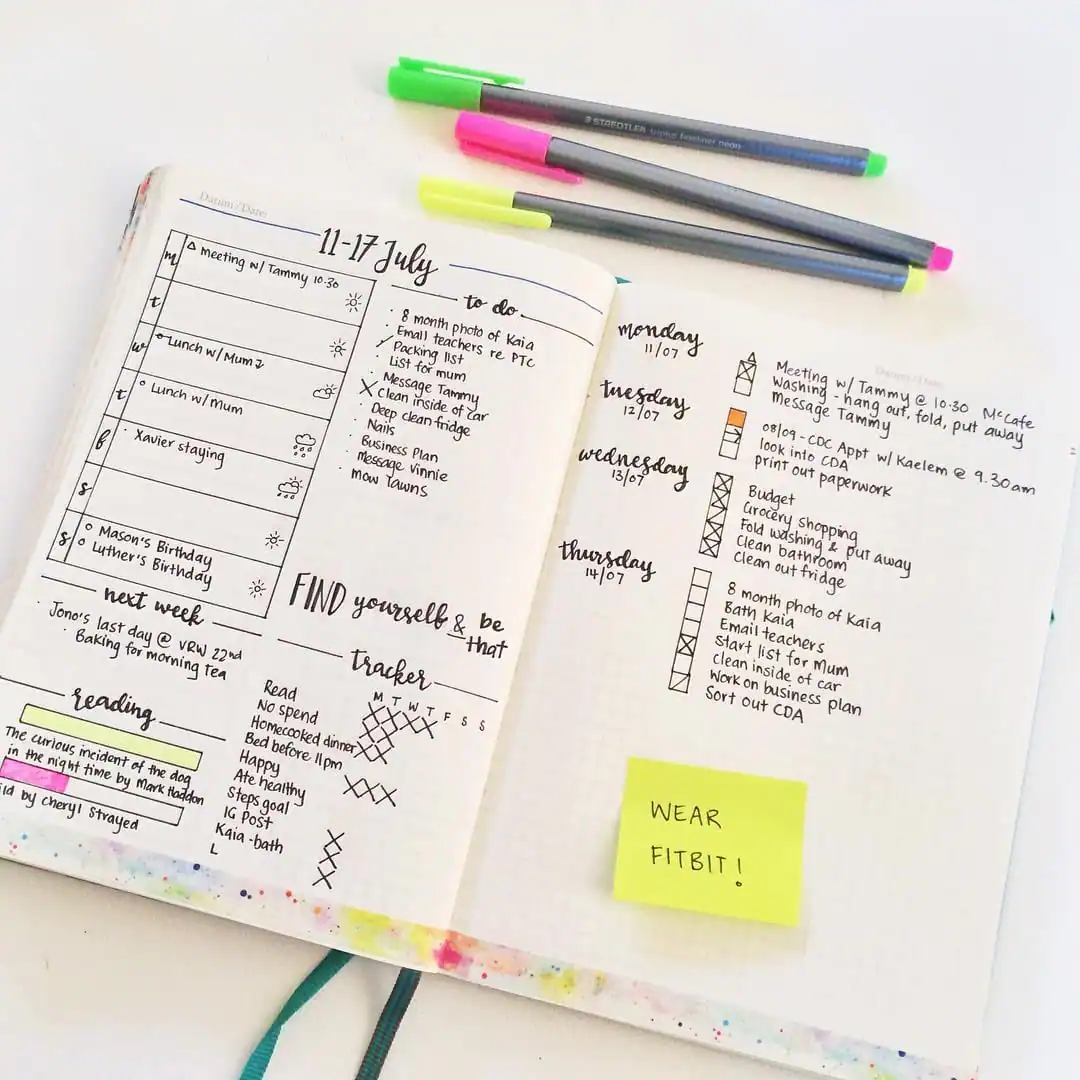 STAEDTLER triplus fineliner neon
Datum/Date:
11-17 July
m
△ Meeting w/ Tammy 10.30
t
w
Lunch w/ Mum
t
Lunch w/ Mum
f
Xavier staying
s
s
Mason's Birthday
Luther's Birthday
to do
8 month photo of Kaia
Email teachers re PTC
Packing list
List for mum
Message Tammy
Clean inside of car
Deep clean fridge
Nails
Business Plan
Message Vinnie
Mow lawns
FIND yourself & be
that
next week
Jono's last day @ VRW 22nd
Baking for morning Tea
reading
The curious incident of the dog
in the night time by Mark Haddon
ild by cheryl strayed
Tracker
M T W T F S S
Read
No spend
Homecooked dinner
Bed before 11pm
Happy
Ate healthy
Steps goal
IG Post
Kaia-bath
L
Datum/Date:
monday
11/07
Meeting w/ Tammy @ 10.30 McCafe
Washing - hang out, fold, put away
Message Tammy
tuesday
12/07
08/09 - CDC Appt w/ Kaelem @ 9.30am
look into CDA
print out paperwork
wednesday
13/07
Budget
Grocery shopping
Fold washing & put away
Clean bathroom
Clean out fridge
thursday
14/07
8 month photo of Kaia
Bath Kaia
Email teachers
Start list for Mum
Clean inside of car
Work on business plan
Sort out CDA
WEAR
FITBIT!